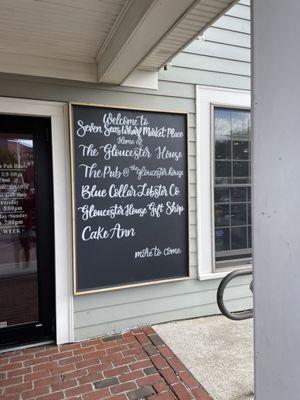 Welcome to
Seven Seas Wharf Market Place
Home of
The Gloucester House
The Pub @ the Gloucester House
Blue Collar Lobster Co
Gloucester House Gift Shop
Cake Ann
more to come